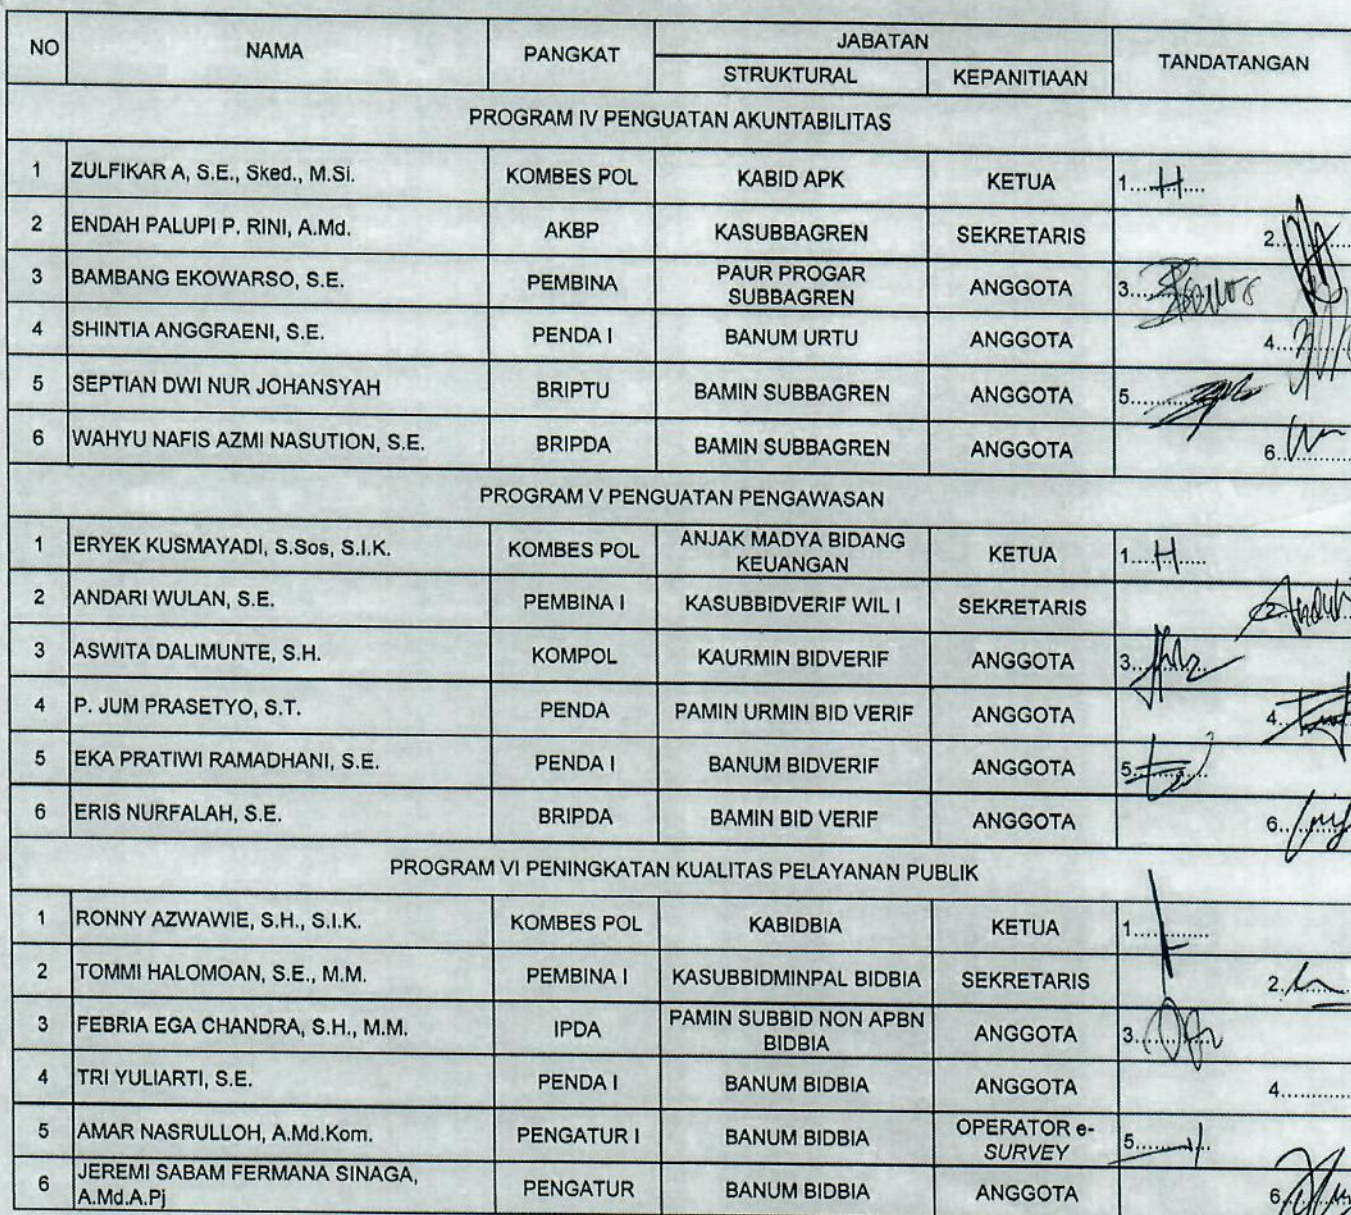 NO NAMA PANGKAT JABATAN TANDATANGAN
STRUKTURAL KEPANITIAAN
PROGRAM IV PENGUATAN AKUNTABILITAS
1 ZULFIKAR A, S.E., Sked., M.Si. KOMBES POL KABID APK KETUA 1
2 ENDAH PALUPI P. RINI, A.Md. AKBP KASUBBAGREN SEKRETARIS 2
3 BAMBANG EKOWARSO, S.E. PEMBINA PAUR PROGAR ANGGOTA 3
SUBBAGREN
4 SHINTIA ANGGRAENI, S.E. PENDA I BANUM URTU ANGGOTA 4
5 SEPTIAN DWI NUR JOHANSYAH BRIPTU BAMIN SUBBAGREN ANGGOTA 5
6 WAHYU NAFIS AZMI NASUTION, S.E. BRIPDA BAMIN SUBBAGREN ANGGOTA 6
PROGRAM V PENGUATAN PENGAWASAN
1 ERYEK KUSMAYADI, S.Sos, S.I.K. KOMBES POL ANJAK MADYA BIDANG KETUA 1
KEUANGAN
2 ANDARI WULAN, S.E. PEMBINA I KASUBBIDVERIF WIL I SEKRETARIS
3 ASWITA DALIMUNTE, S.H. KOMPOL KAURMIN BIDVERIF ANGGOTA 3
4 P. JUM PRASETYO, S.T. PENDA PAMIN URMIN BID VERIF ANGGOTA 4
5 EKA PRATIWI RAMADHANI, S.E. PENDA I BANUM BIDVERIF ANGGOTA 5
6 ERIS NURFALAH, S.E. BRIPDA BAMIN BID VERIF ANGGOTA 6
PROGRAM VI PENINGKATAN KUALITAS PELAYANAN PUBLIK
1 RONNY AZWAWIE, S.H., S.I.K. KOMBES POL KABIDBIA KETUA 1
2 TOMMI HALOMOAN, S.E., M.M. PEMBINA I KASUBBIDMINPAL BIDBIA SEKRETARIS 2
3 FEBRIA EGA CHANDRA, S.H., M.M. IPDA PAMIN SUBBID NON APBN ANGGOTA 3
BIDBIA
4 TRI YULIARTI, S.E. PENDA I BANUM BIDBIA ANGGOTA 4
5 AMAR NASRULLOH, A.Md.Kom. PENGATUR I BANUM BIDBIA OPERATOR e- 5
SURVEY
6 JEREMI SABAM FERMANA SINAGA, PENGATUR BANUM BIDBIA ANGGOTA 6
A.Md.A.Pj